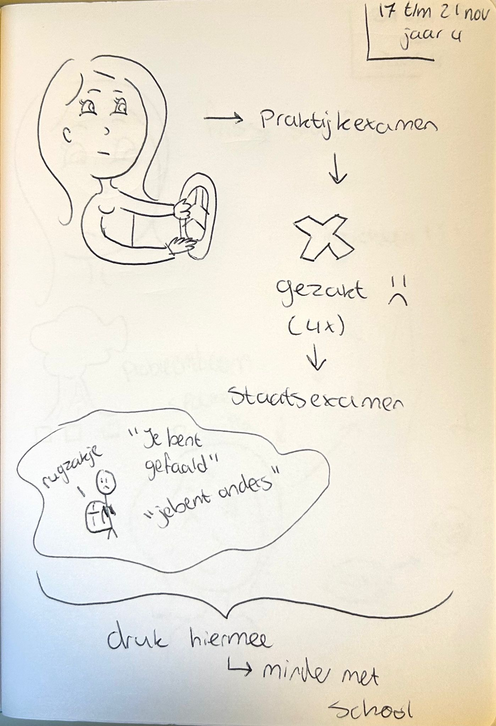 17 t/m 21 nov
jaar 4
Praktijkexamen
gezakt
(4x)
Staatsexamen
rugzakje
"Je bent
gefaald"
"je bent anders"
druk hiermee
minder met
School